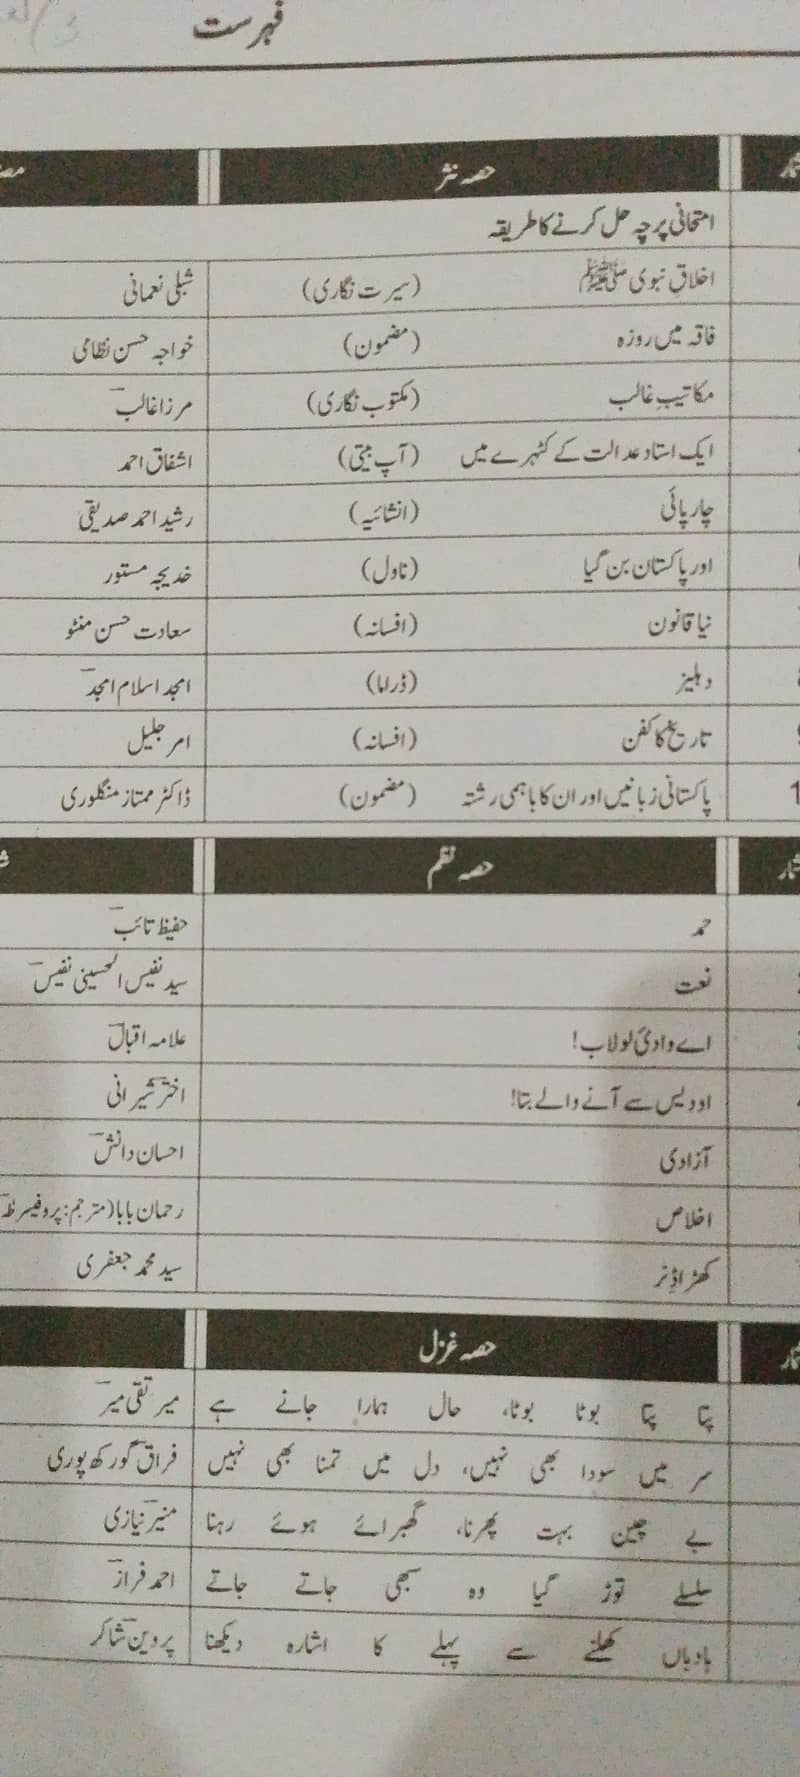 فہرست
حصہ نثر
امتحانی پرچہ حل کرنے کا طریقہ
اخلاقِ نبوی ﷺ (سیرت نگاری) شبلی نعمانی
فاقہ میں روزہ (مضمون) خواجہ حسن نظامی
مکاتیبِ غالب (مکتوب نگاری) مرزا غالب
ایک استاد عدالت کے کٹہرے میں (آپ بیتی) اشفاق احمد
چارپائی (انشائیہ) رشید احمد صدیقی
اور پاکستان بن گیا (ناول) خدیجہ مستور
نیا قانون (افسانہ) سعادت حسن منٹو
دہلیز (ڈراما) امجد اسلام امجد
تاریخ کا کفن (افسانہ) امر جلیل
1 پاکستانی زبانیں اور ان کا باہمی رشتہ (مضمون) ڈاکٹر ممتاز منگلوری
حصہ نظم
حمد حفیظ تائب
نعت سید نفیس الحسینی نفیس
اے وادیٔ لولاب! علامہ اقبال
او دیس سے آنے والے بتا! اختر شیرانی
آزادی احسان دانش
اخلاص رحمان بابا (مترجم: پروفیسر طہٰ
کھڑا ڈنر سید محمد جعفری
حصہ غزل
پتا پتا بوٹا بوٹا، حال ہمارا جانے ہے میر تقی میر
سر میں سودا بھی نہیں، دل میں تمنا بھی نہیں فراق گورکھ پوری
بے چین بہت پھرنا، گھبرائے ہوئے رہنا منیر نیازی
سلسلے توڑ گیا وہ سبھی جاتے جاتے احمد فراز
بادباں کھلنے سے پہلے کا اشارہ دیکھنا پروین شاکر